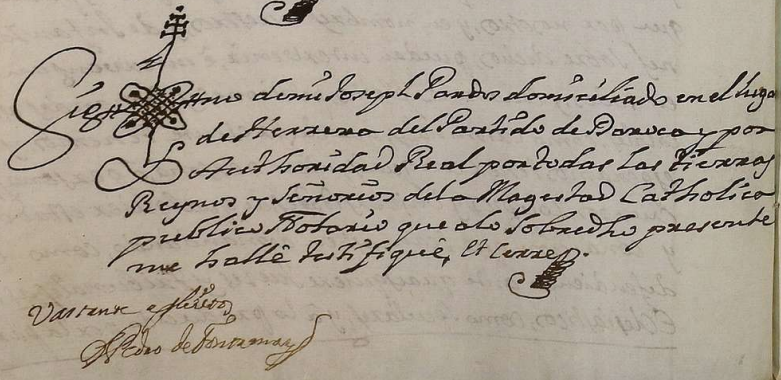 Sig no de mi Joseph Pardos domiciliado en el lugar
de Herrera del Partido de Daroca y por
Authoridad Real por todas las tierras
Reynos y Señorios de la Magestad Catholica
publico Notario que a lo sobredho presente
me hallè testifiquè, Et Cerrè.
Pedro de